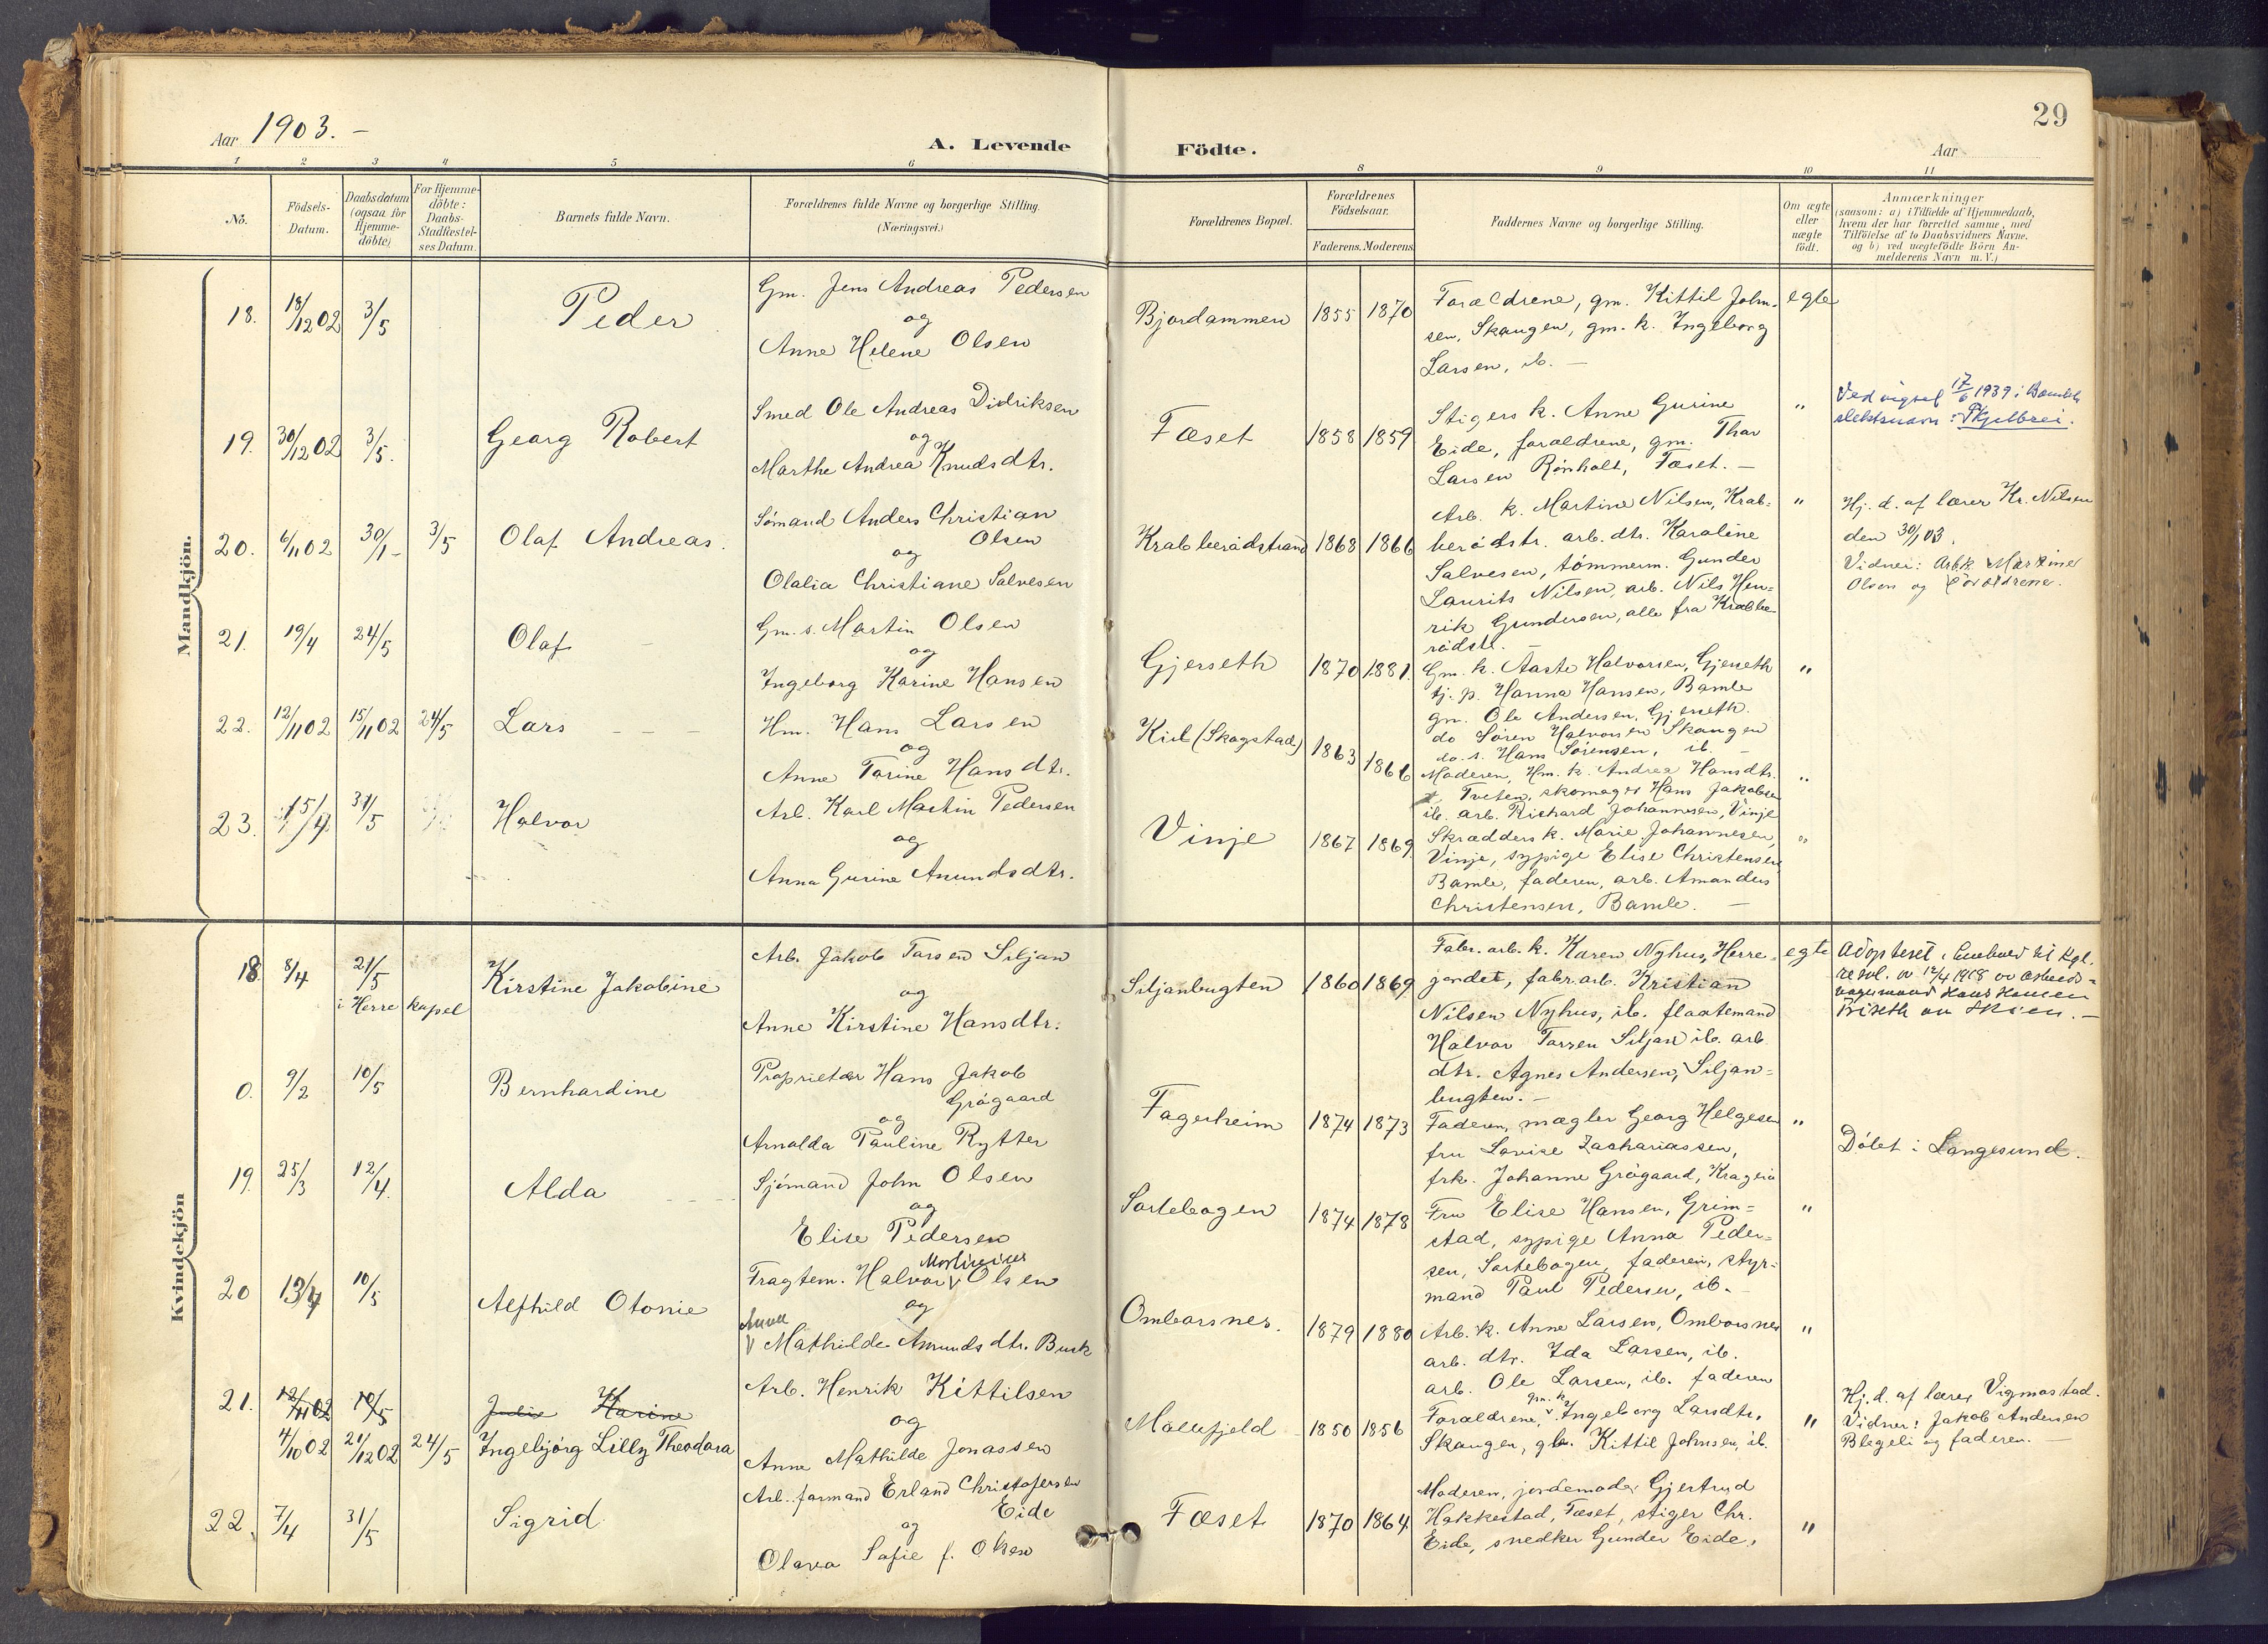 Aar 1903. –
A. Levende
Födte.
Aar
29
1 2 3 4 5 6 8 9 10 11
No.
Födsels-Datum.
Daabsdatum (ogsaa for Hjemme-döbte)
For Hjemme-döbte: Daabs-Stadfæstel-ses Datum.
Barnets fulde Navn.
Forældrenes fulde Navne og borgerlige Stilling. (Næringsvei.)
Forældrenes Bopæl.
Forældrenes Födselsaar.
Faderens. Moderens.
Faddernes Navne og borgerlige Stilling.
Om ægte eller uægte födt.
Anmærkninger
(saasom: a) i Tilfælde af Hjemmedaab,
hvem der har forrettet samme, med
Tilföielse af to Daabsvidners Navne,
og b) ved uægtefödte Börn An-
melderens Navn m. V.)
Mandkjön.
18. 18/12 02 3/5
Peder
Gm. Jens Andreas Pedersen
og
Anne Helene Olsen
Bjordammen 1855 1870
Forældrene, gm. Kittil John-
sen, Skaugen, gm. k. Ingeborg
Larsen, ib. –
egte
19. 30/12 02 3/5.
Georg Robert
Smed Ole Andreas Didriksen
og
Marthe Andrea Knudsdtr.
Fæset 1858 1859
Stigers k. Anne Gurine
Eide, forældrene, gm. Thor
Larsen Rønholt, Fæset. –
"
Ved vigsel 17/6 1939 i Bamble
slektsnavn:
20. 6/11 02 30/1- 3/5
Olaf Andreas.
Sømand Anders Christian
Olsen
og
Olalia Christiane Salvesen
Krabberødstrand 1868 1866
Arb. k. Martine Nilsen, Krab-
berødstr. arb. dtr. Karoline
Salvesen, tømmerm. Gunder
Laurits Nilsen, arb. Nils Hen-
rik Gundersen, alle fra Krabbe-
rødstr. –
"
Hj. d. af lærer Kr. Nilsen
den 30/1 03.
Vidner: Arbk. Martine
Olsen og forældrene.
21. 19/4 24/5
Olaf
Gm. s. Martin Olsen
og
Ingeborg Karine Hansen
Gjerseth 1870 1881.
Gm. k. Aaste Halvorsen, Gjerseth
tj. p. Hanna Hansen, Bamle
gm. Ole Andersen, Gjerseth.
do Søren Halvorsen Skaugen
do. s. Hans Sørensen, ib. –
"
22. 12/11 02 15/11 02 24/5
Lars
Hm. Hans Larsen
og
Anne Torine Hansdtr.
Kiil (Skogstad) 1863 1866
Moderen, Hm. k. Andrea Hansdtr.
Tveten, skomager Hans Jakobsen
ib. arb. Richard Johannesen, Vinje
"
23. 15/4 31/5
Halvor
Arb. Karl Martin Pedersen
og
Anna Gurine Amundsdtr.
Vinje 1867 1869.
Skrædders k. Marie Johannesen,
Vinje, sypige Elise Christensen
Bamle, faderen, arb. Amandus
Christensen, Bamle. –
"
Kvindekjön
18 8/4 21/5
i Herre kapel
Kirstine Jakobine
Arb. Jakob Tarsen Siljan
og
Anne Kirstine Hansdtr.
Siljanbugten 1860 1869
Fabr. arb. k. Karen Nyhus, Herre-
gordet, fabr. arb. Kristian
Nilsen Nyhus, ib. flaatemand
Halvor Tarsen Siljan ib. arb.
dtr. Agnes Andersen, Siljan-
bugten. –
egte
Adopteret i henhold til kgl.
resol. av 12/4 1918 av arbeids-
Hans Hansen
av Skien. –
0. 9/2 10/5
Bernhardine
Proprietær Hans Jakob
Grögaard
og
Arnolda Pauline Rytter
Fagerheim 1874 1873
Faderen, mægler Georg Helgesen
fru Lovise Zachariassen,
frk. Johanne Grögaard, Kragerø
"
Döbt i Langesund.
19. 25/3 12/4.
Alda
Sjömand John Olsen
og
Elise Pedersen
Sortebogen 1874 1878
Fru Elise Hansen, Grim-
stad, sypige Anna Peder-
sen, Sortebogen, faderen, styr-
mand Paul Pedersen, ib.
"
20 13/4 10/5
Alfhild Otonie
Martinius
Fragtem. Halvor Olsen
og
Anne
Mathilde Amundsdtr. Busk
Omborsnes. 1879 1880
Arb. k. Anne Larsen, Omborsnes
arb. dtr. Ida Larsen, ib.
arb. Ole Larsen, ib. faderen
"
21. 12/11 02 10/5
Julie Karine
4/10 02 21/12 02 24/5 Ingebjörg Lilly Theodora
Arb. Henrik Kittilsen
og
Anne Mathilde Jonassen
Mollefjeld 1850 1856
gm. k.
Forældrene, Ingeborg Larsdtr.
Skaugen, gm. Kittil Johnsen, ib.
"
Hj. d. af lærer Vigmostad.
Vidner: Jakob Andersen
Blegeli og faderen. –
22. 7/4 31/5
Sigrid
Arb. formand Erland Christofersen
Eide
og
Olava Sofie f. Olsen
Fæset 1870 1864
Moderen, jordemoder Gjertrud
Hakkestad, Fæset, stiger Chr.
Eide, snedker Gunder Eide.
"